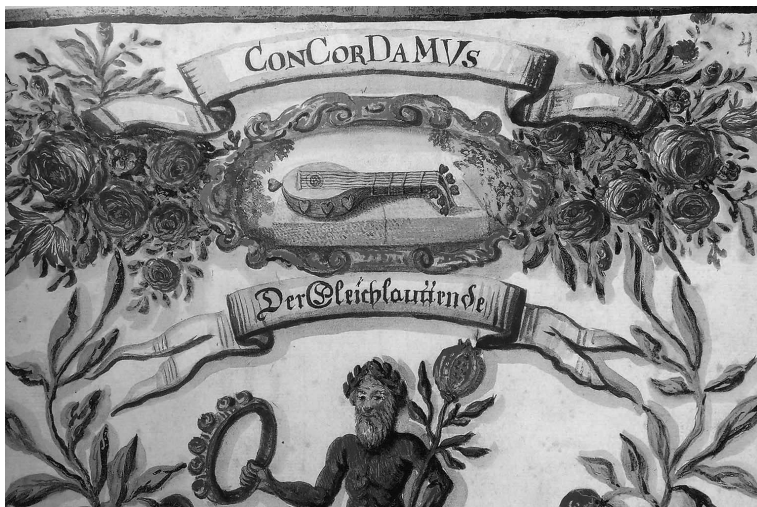 ConCorDaMVs
4
Der Gleichlautende